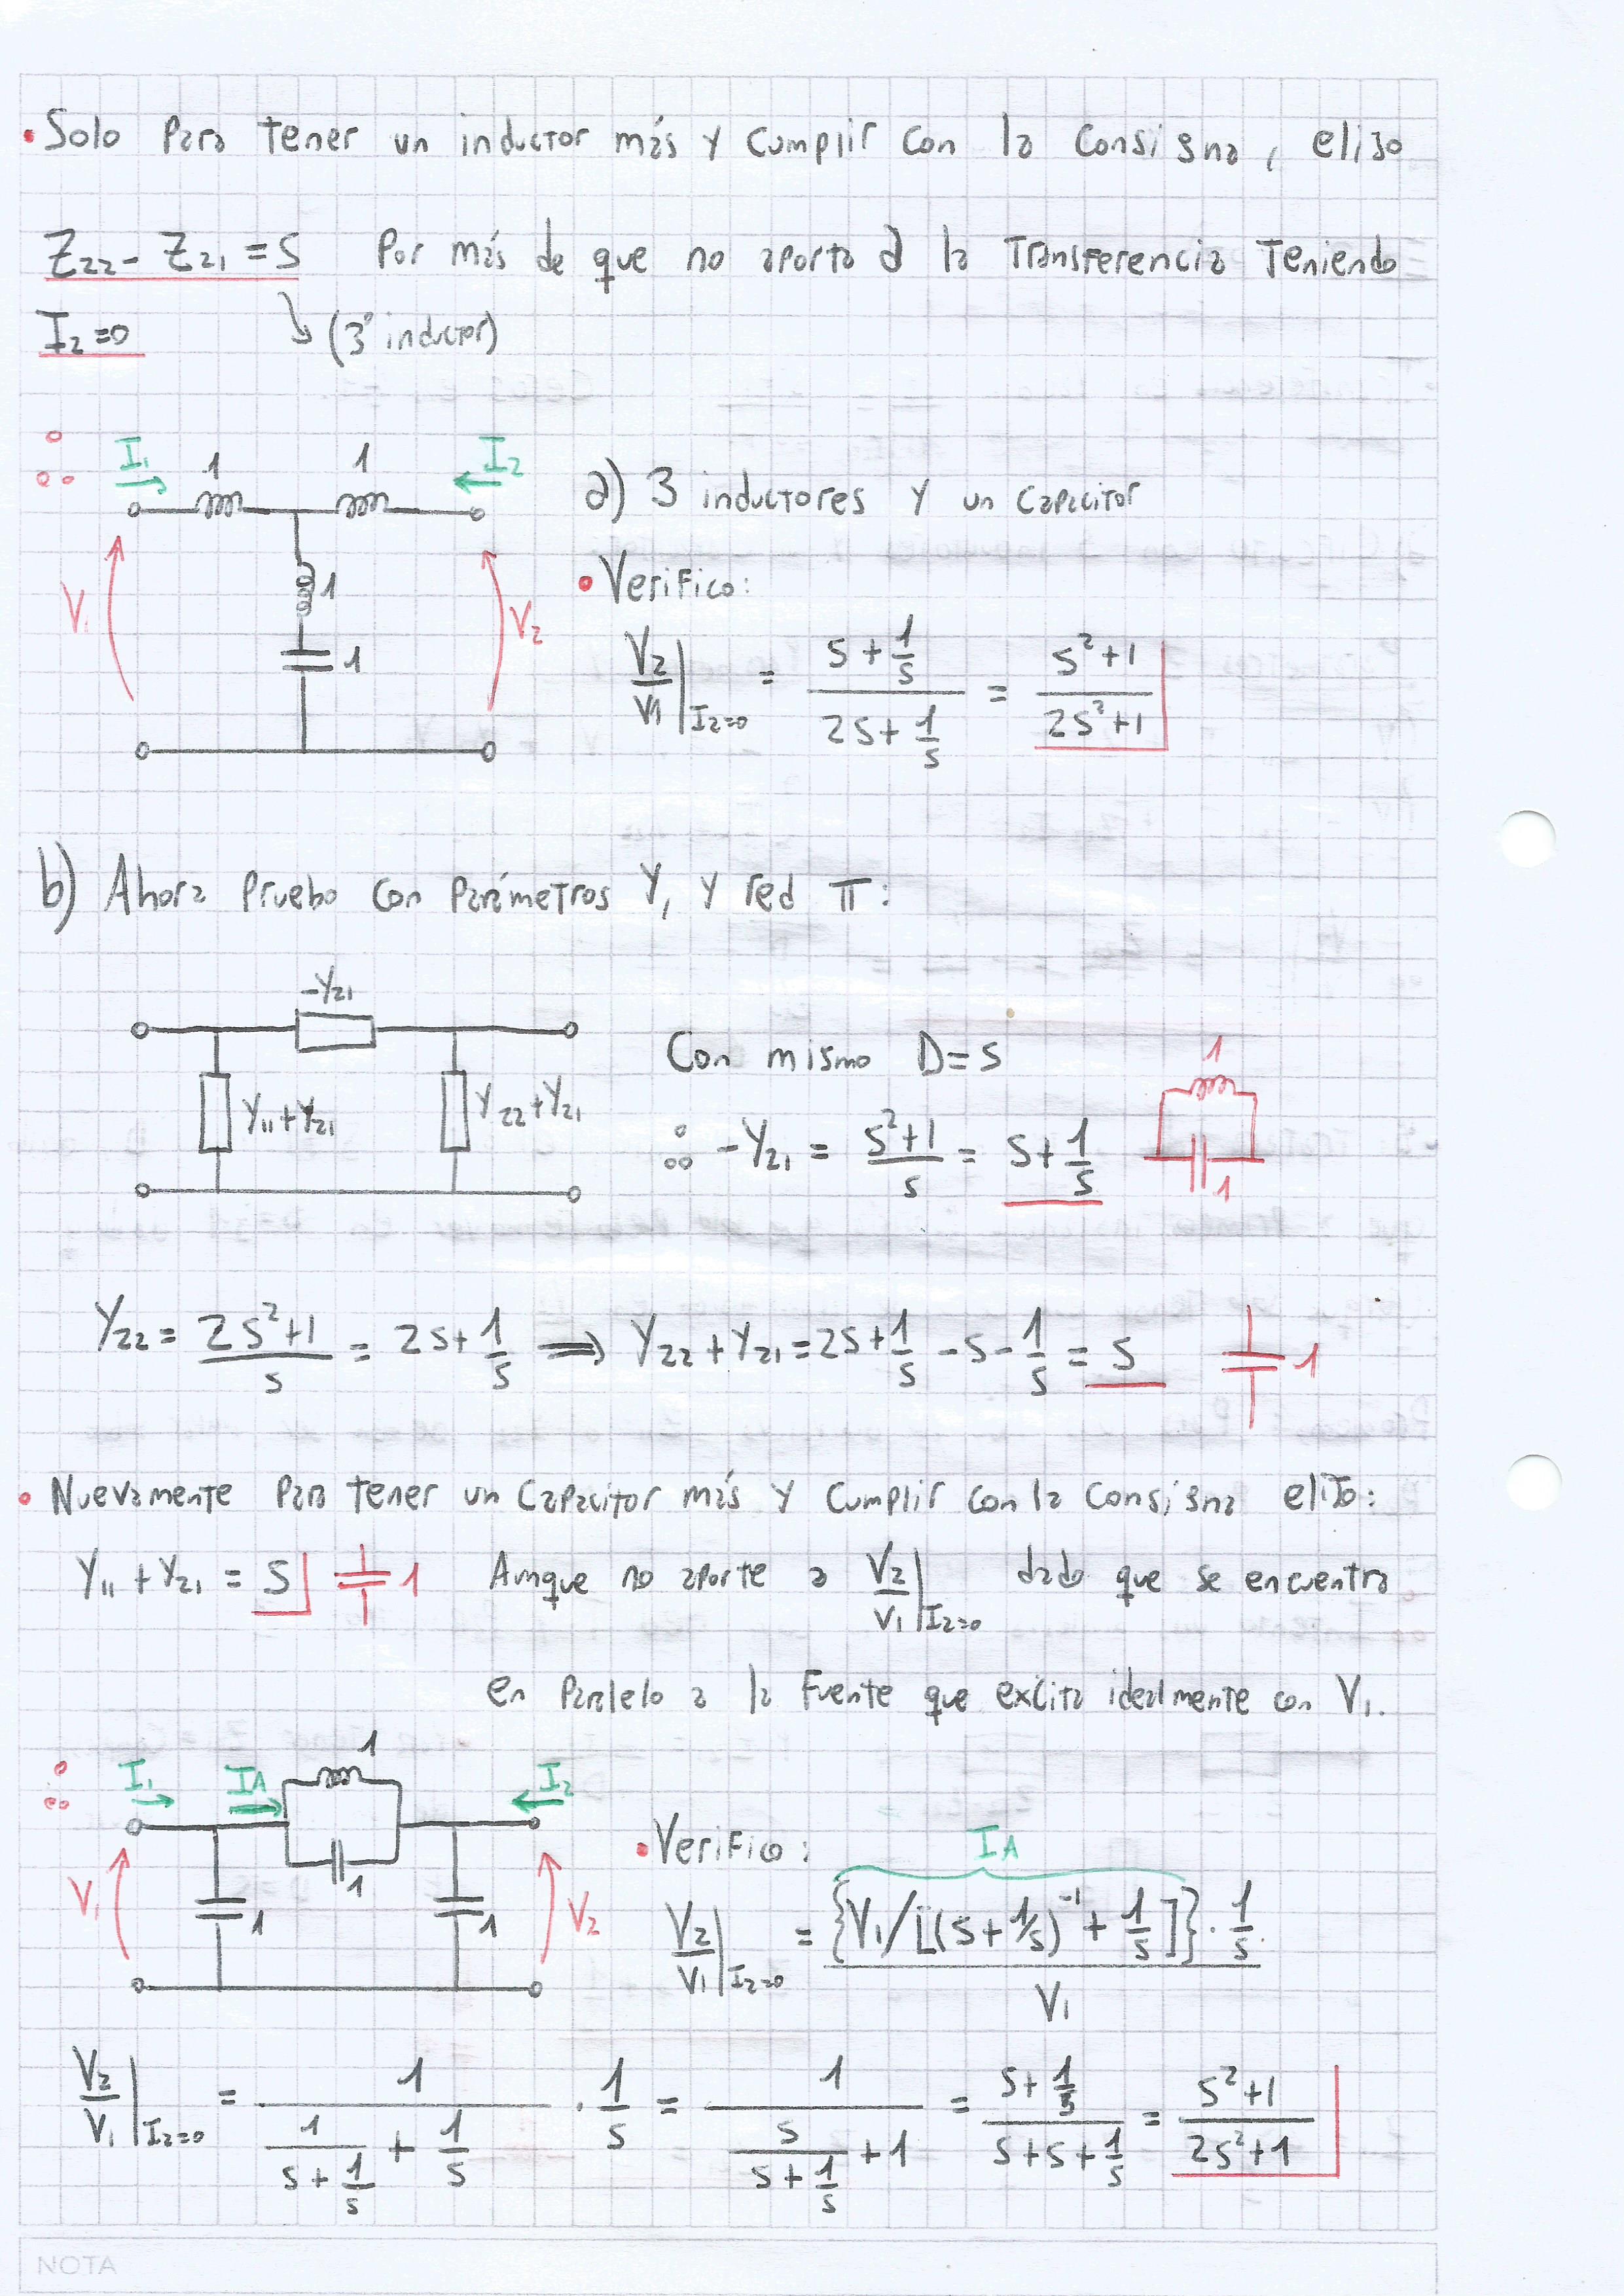 • Solo para tener un inductor más y cumplir con la consigna, elijo
Z22 - Z21 = S Por más de que no aporta a la transferencia teniendo
I2=0 (3° inductor)
∴
I1 1 1 I2
V1 1 1 V2
a) 3 inductores y un capacitor
• Verifico:
V2/V1 |I2=0 = (S + 1/S)/(2S + 1/S) = (S²+1)/(2S²+1)
b) Ahora pruebo con parámetros Y, y red π:
-Y21
Y11+Y21 Y22+Y21
Con mismo D=S
∴ -Y21 = (S²+1)/S = S + 1/S
1
1
Y22 = (2S²+1)/S = 2S + 1/S ⟹ Y22 + Y21 = 2S + 1/S - S - 1/S = S 1
• Nuevamente para tener un capacitor más y cumplir con la consigna elijo:
Y11 + Y21 = S 1 Aunque no aporte a V2/V1 |I2=0 dado que se encuentra
en paralelo a la fuente que excita idealmente con V1.
∴
I1 IA 1 I2
1
V1 1 1 V2
• Verifico: IA
V2/V1 |I2=0 = {V1/[(S+1/S)⁻¹ + 1/S]} · 1/S / V1
V2/V1 |I2=0 = 1/(1/(S+1/S) + 1/S) · 1/S = 1/(S/(S+1/S) + 1) = (S+1/S)/(S+S+1/S) = (S²+1)/(2S²+1)
NOTA